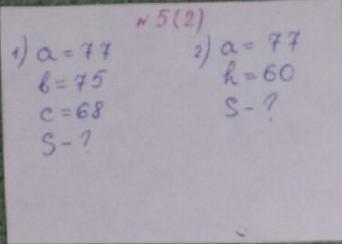 № 5(2)
1) a = 77
b = 75
c = 68
S - ?
2) a = 77
h = 60
S - ?